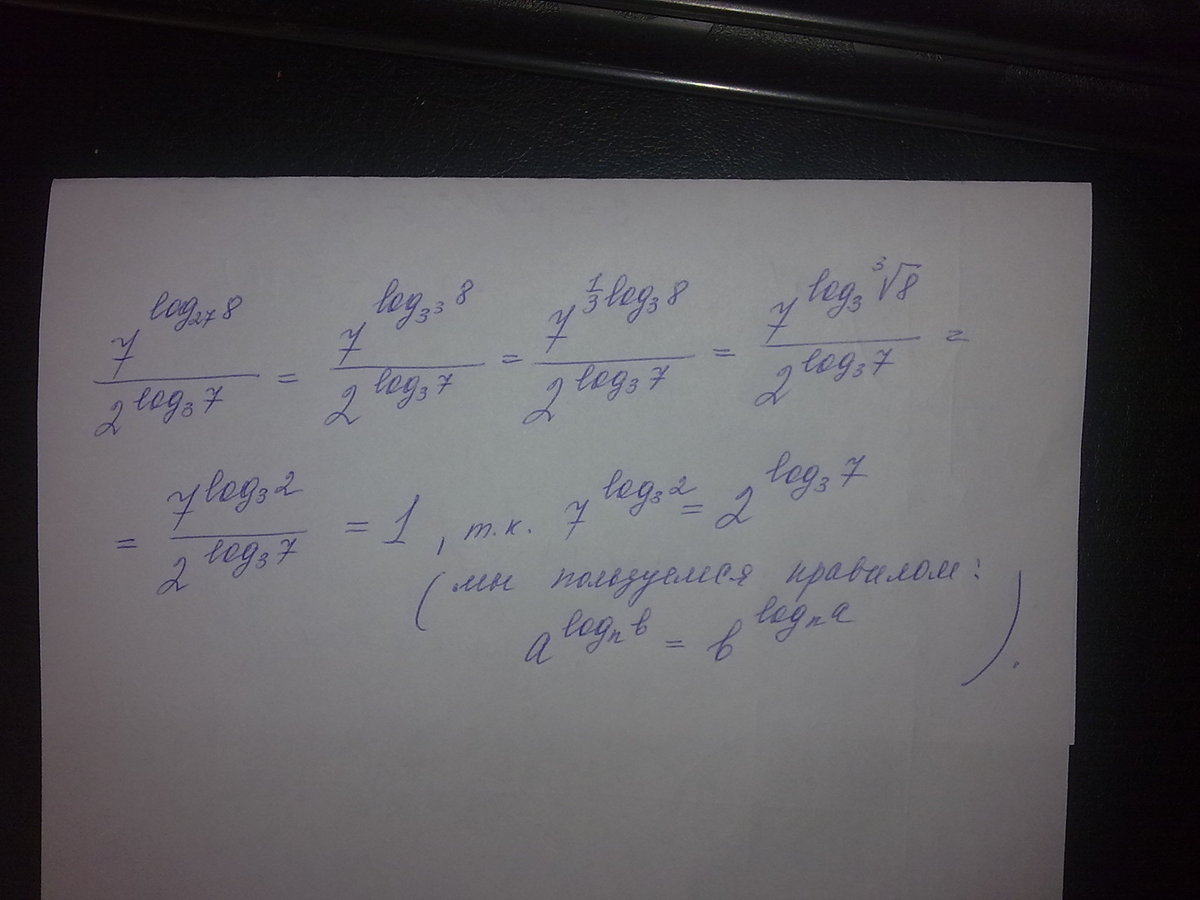 7^{log_{27} 8} / 2^{log_3 7} = 7^{log_{3^3} 8} / 2^{log_3 7} = 7^{1/3 log_3 8} / 2^{log_3 7} = 7^{log_3 ∛8} / 2^{log_3 7} =
= 7^{log_3 2} / 2^{log_3 7} = 1, т.к. 7^{log_3 2} = 2^{log_3 7}
(мы пользуемся правилом:
a^{log_n b} = b^{log_n a}).